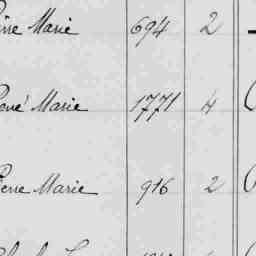 Marie 694 2
René Marie 1771 4
Pierre Marie 916 2